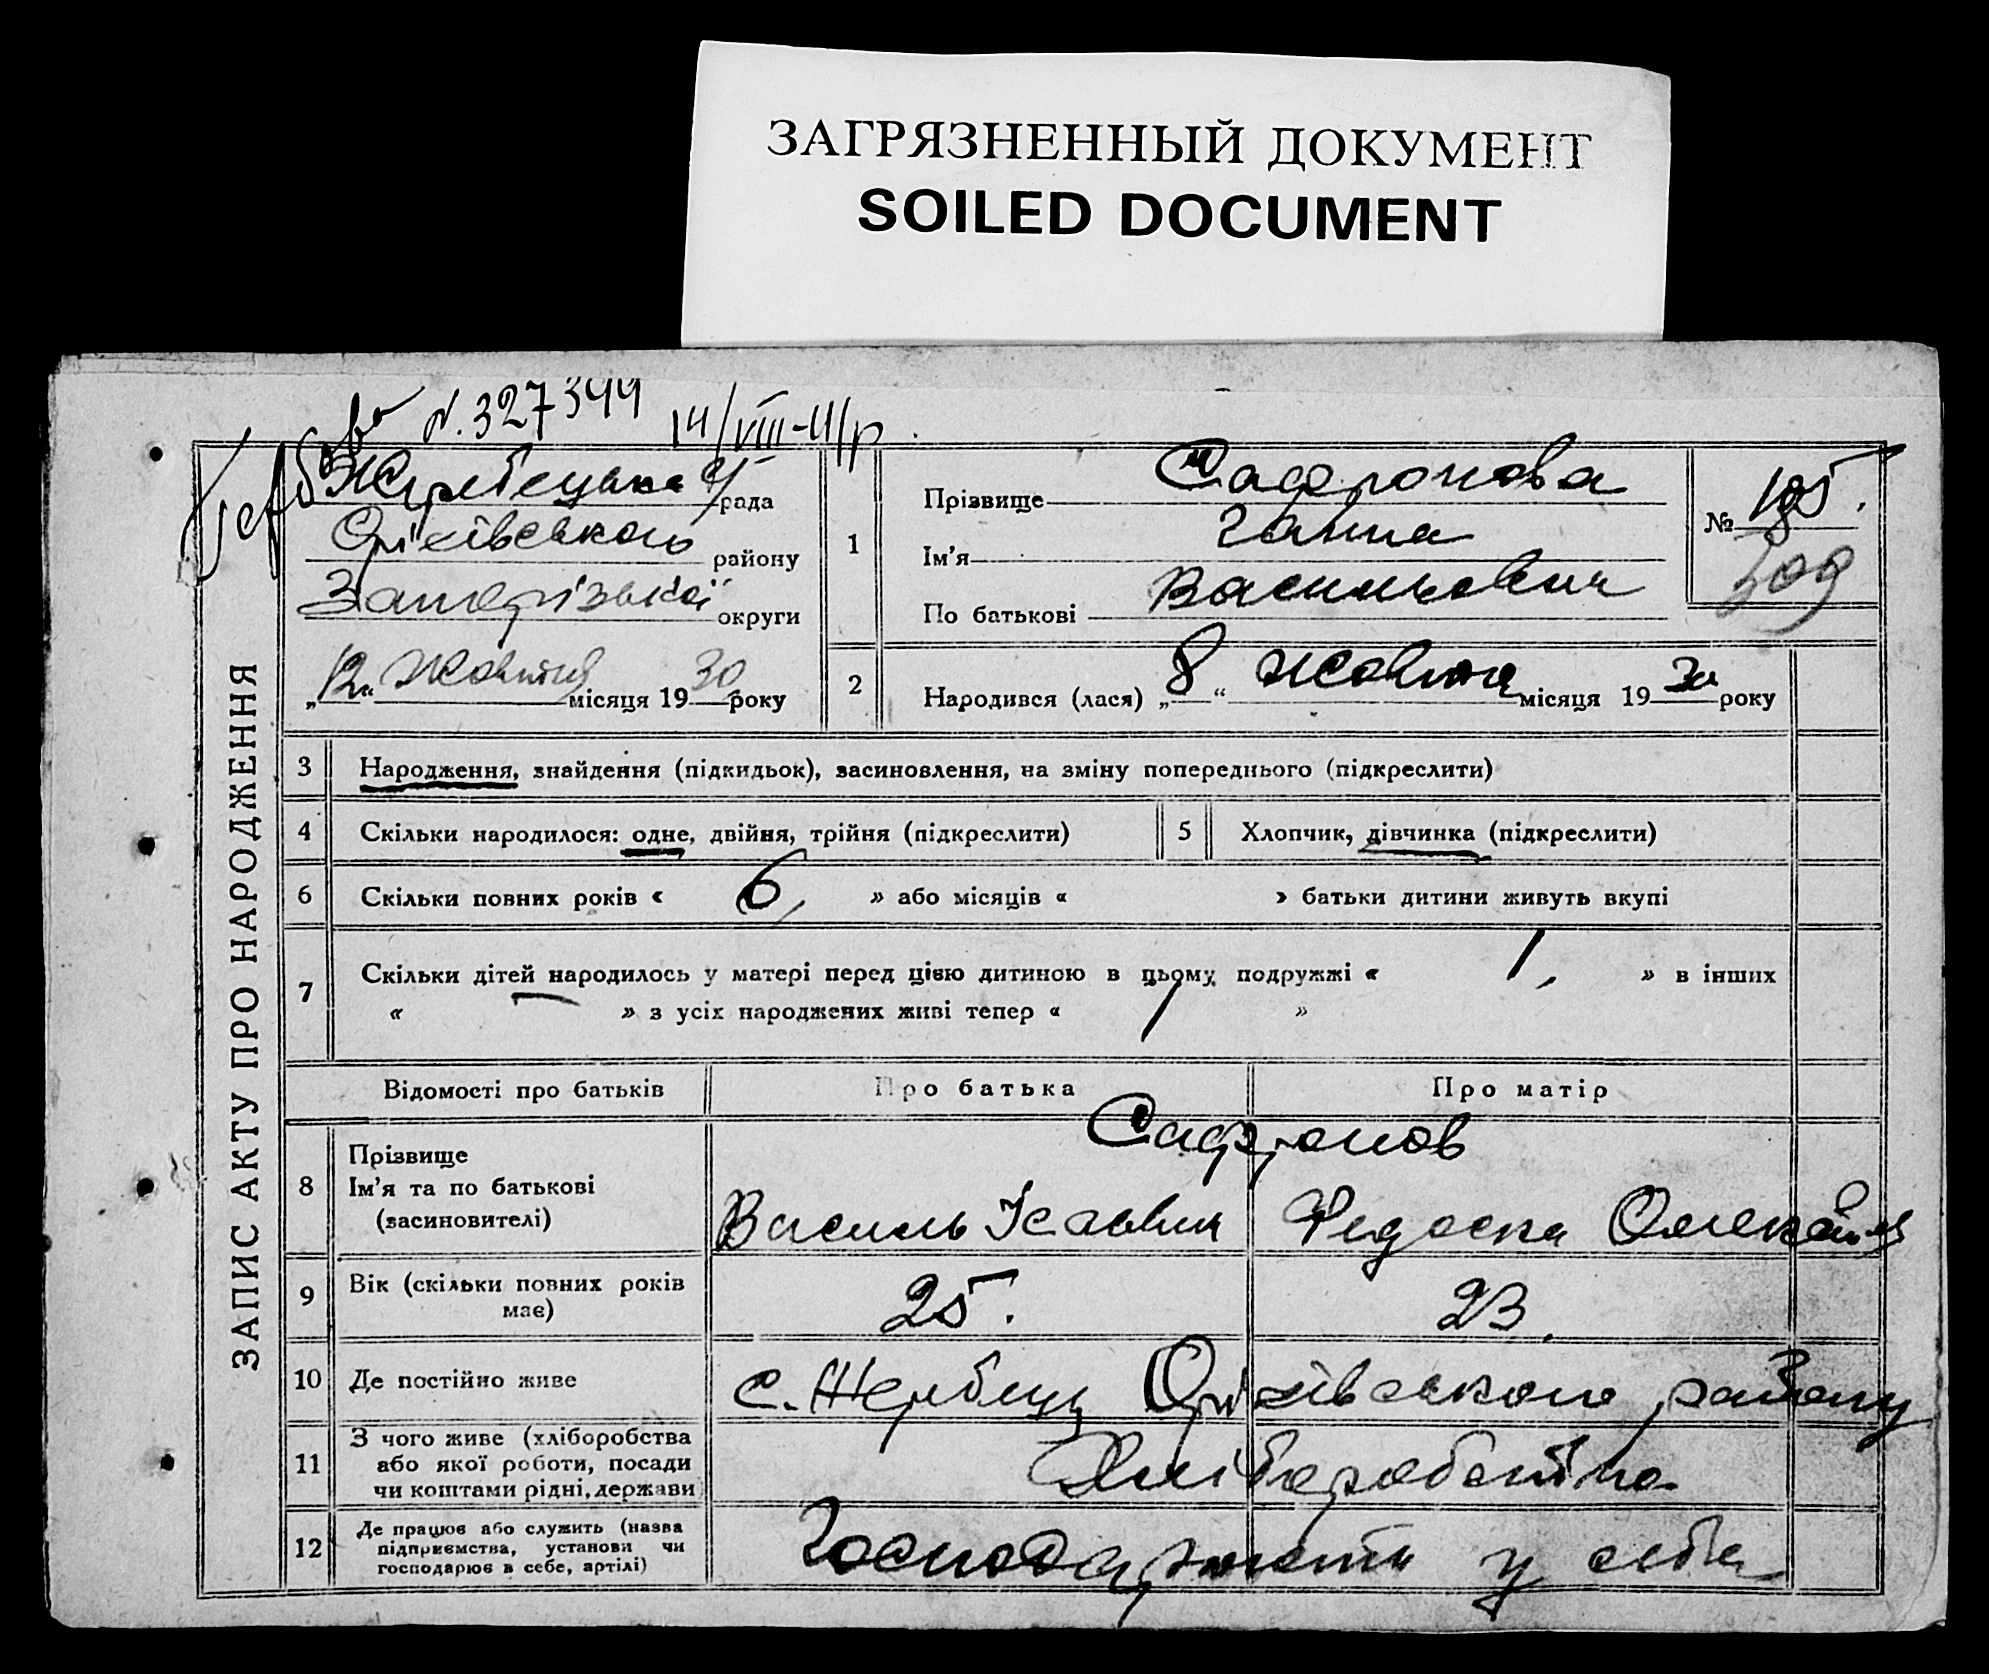 ЗАГРЯЗНЕННЫЙ ДОКУМЕНТ
SOILED DOCUMENT
N. 327344 14/VIII-41 р
ЗАПИС АКТУ ПРО НАРОДЖЕННЯ
Жеребецька с/рада
Оріхівського району
Запорізької округи
„12“ Жовтня місяця 1930 року
1
Прізвище Сафронова
Ім'я Ганна
По батькові Васильович
№ 185.
309
2
Народився (лася) „8“ жовтня місяця 1930 року
3 Народження, знайдення (підкидьок), засиновлення, на зміну попереднього (підкреслити)
4 Скільки народилося: одне, двійня, трійня (підкреслити) 5 Хлопчик, дівчинка (підкреслити)
6 Скільки повних років « 6 » або місяців « » батьки дитини живуть вкупі
7 Скільки дітей народилось у матері перед цією дитиною в цьому подружжі « 1, » в інших
« — » з усіх народжених живі тепер « 1 »
Відомості про батьків Про батька Про матір
8 Прізвище
Ім'я та по батькові
(засиновителі)
Сафронов
Василь Ісаович Федоска
9 Вік (скільки повних років
має)
25. 23.
10 Де постійно живе с. Жеребець Оріхівського району
11 З чого живе (хліборобства
або якої роботи, посади
чи коштами рідні, держави
Хліборобства
12 Де працює або служить (назва
підприємства, установи чи
господарює в себе, артілі)
Господарюють у себе